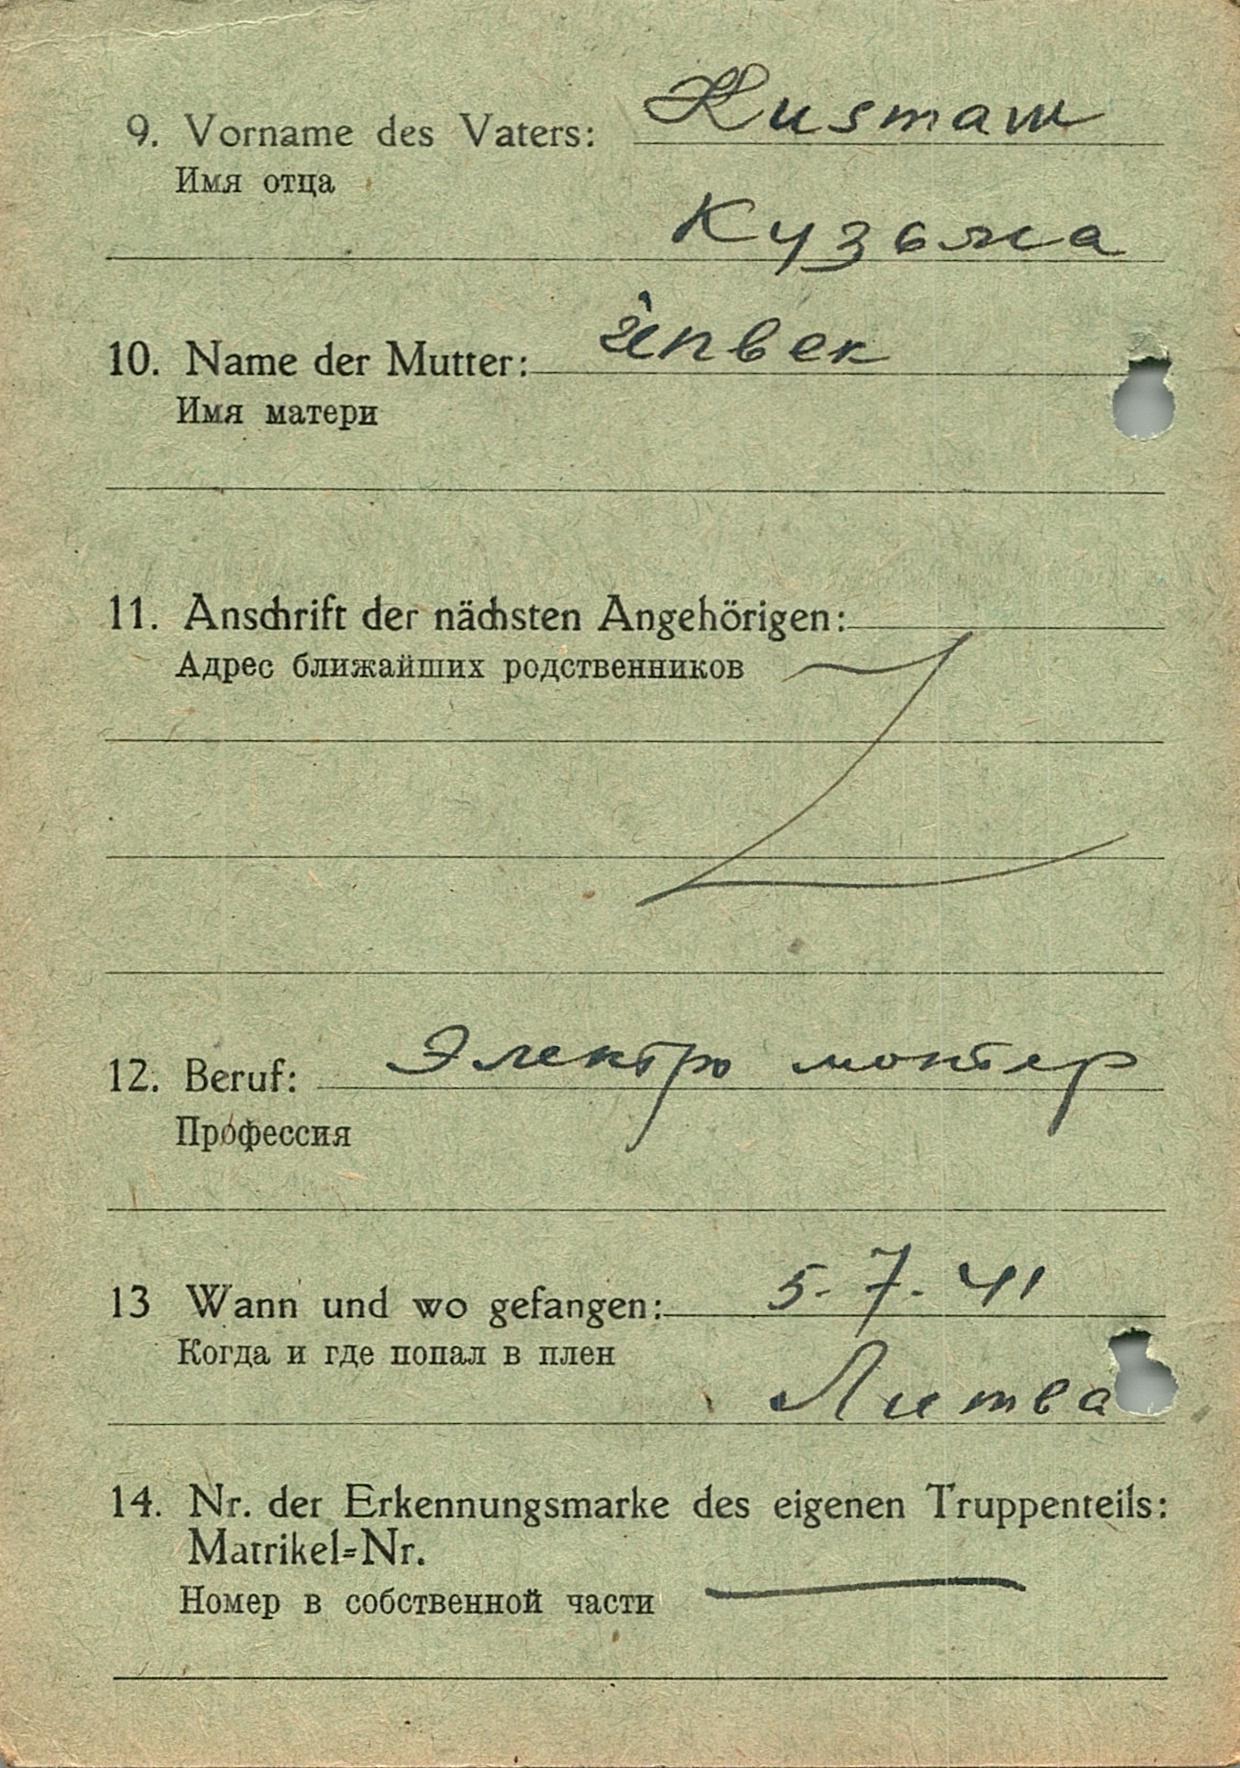 9. Vorname des Vaters: Кизташ
Имя отца
Кузьма
10. Name der Mutter:
Имя матери
11. Anschrift der nächsten Angehörigen:
Адрес ближайших родственников
12. Beruf: Электро монтер
Профессия
13 Wann und wo gefangen: 5.7.41
Когда и где попал в плен
Литва
14. Nr. der Erkennungsmarke des eigenen Truppenteils:
Matrikel-Nr.
Номер в собственной части